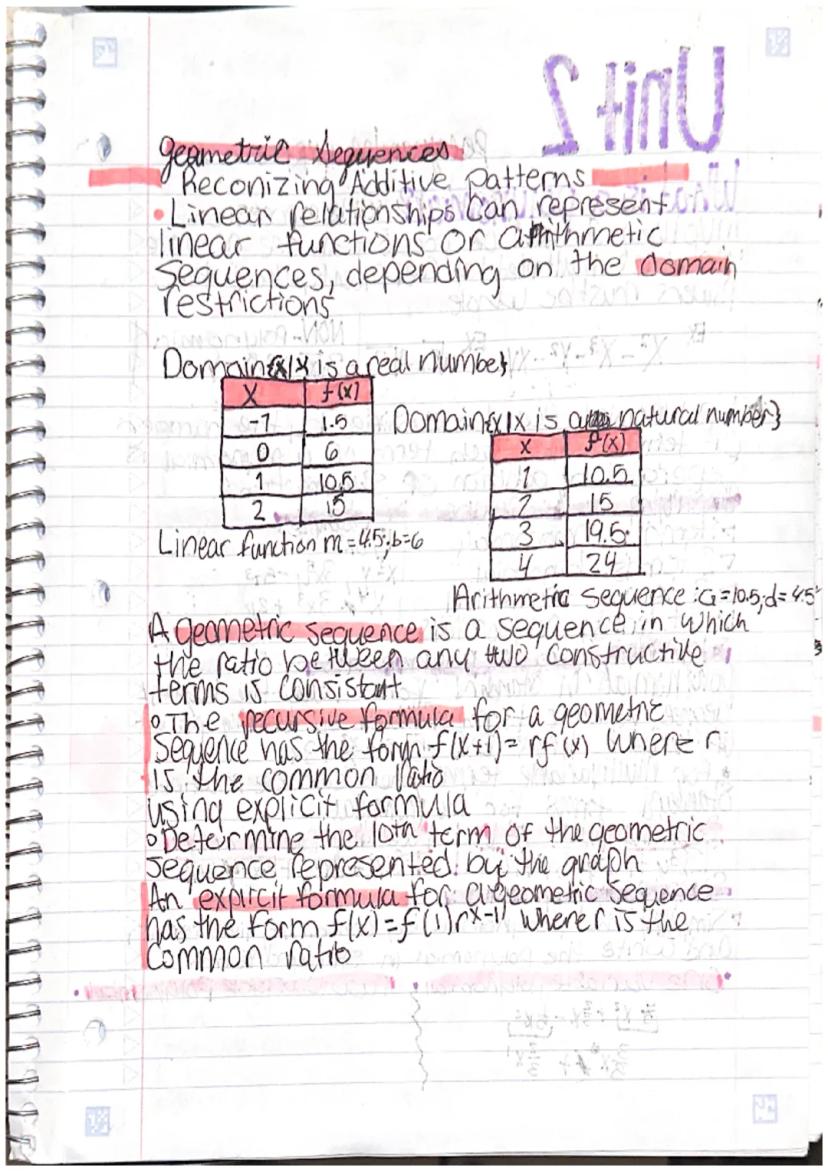 Unit 2
geometric sequences
Reconizing Additive patterns
• Linear relationships can represent
linear functions or arithmetic
sequences, depending on the domain
restrictions
Domain{x|x is a real number}
x f(x)
-1 1.5
0 6
1 10.5
2 15
Linear function m=4.5;b=6
Domain{x|x is a natural number}
x f(x)
1 10.5
2 15
3 19.5
4 24
Arithmetic sequence :a=10.5;d=4.5
A geometric sequence is a sequence in which
the ratio between any two constructive
terms is consistant
o The recursive formula for a geometric
sequence has the form f(x+1)=rf(x) where r
is the common ratio
using explicit formula
o Determine the 10th term of the geometric
sequence represented by the graph
An explicit formula for a geometric sequence
has the form f(x)=f(1)r^x-1 where r is the
common ratio